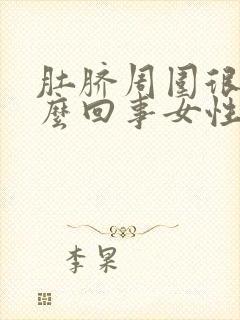 肚脐周围很
麼回事女性
李果